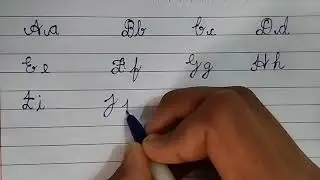 Aa Bb Cc Dd
Ee Ff Gg Hh
Ii J